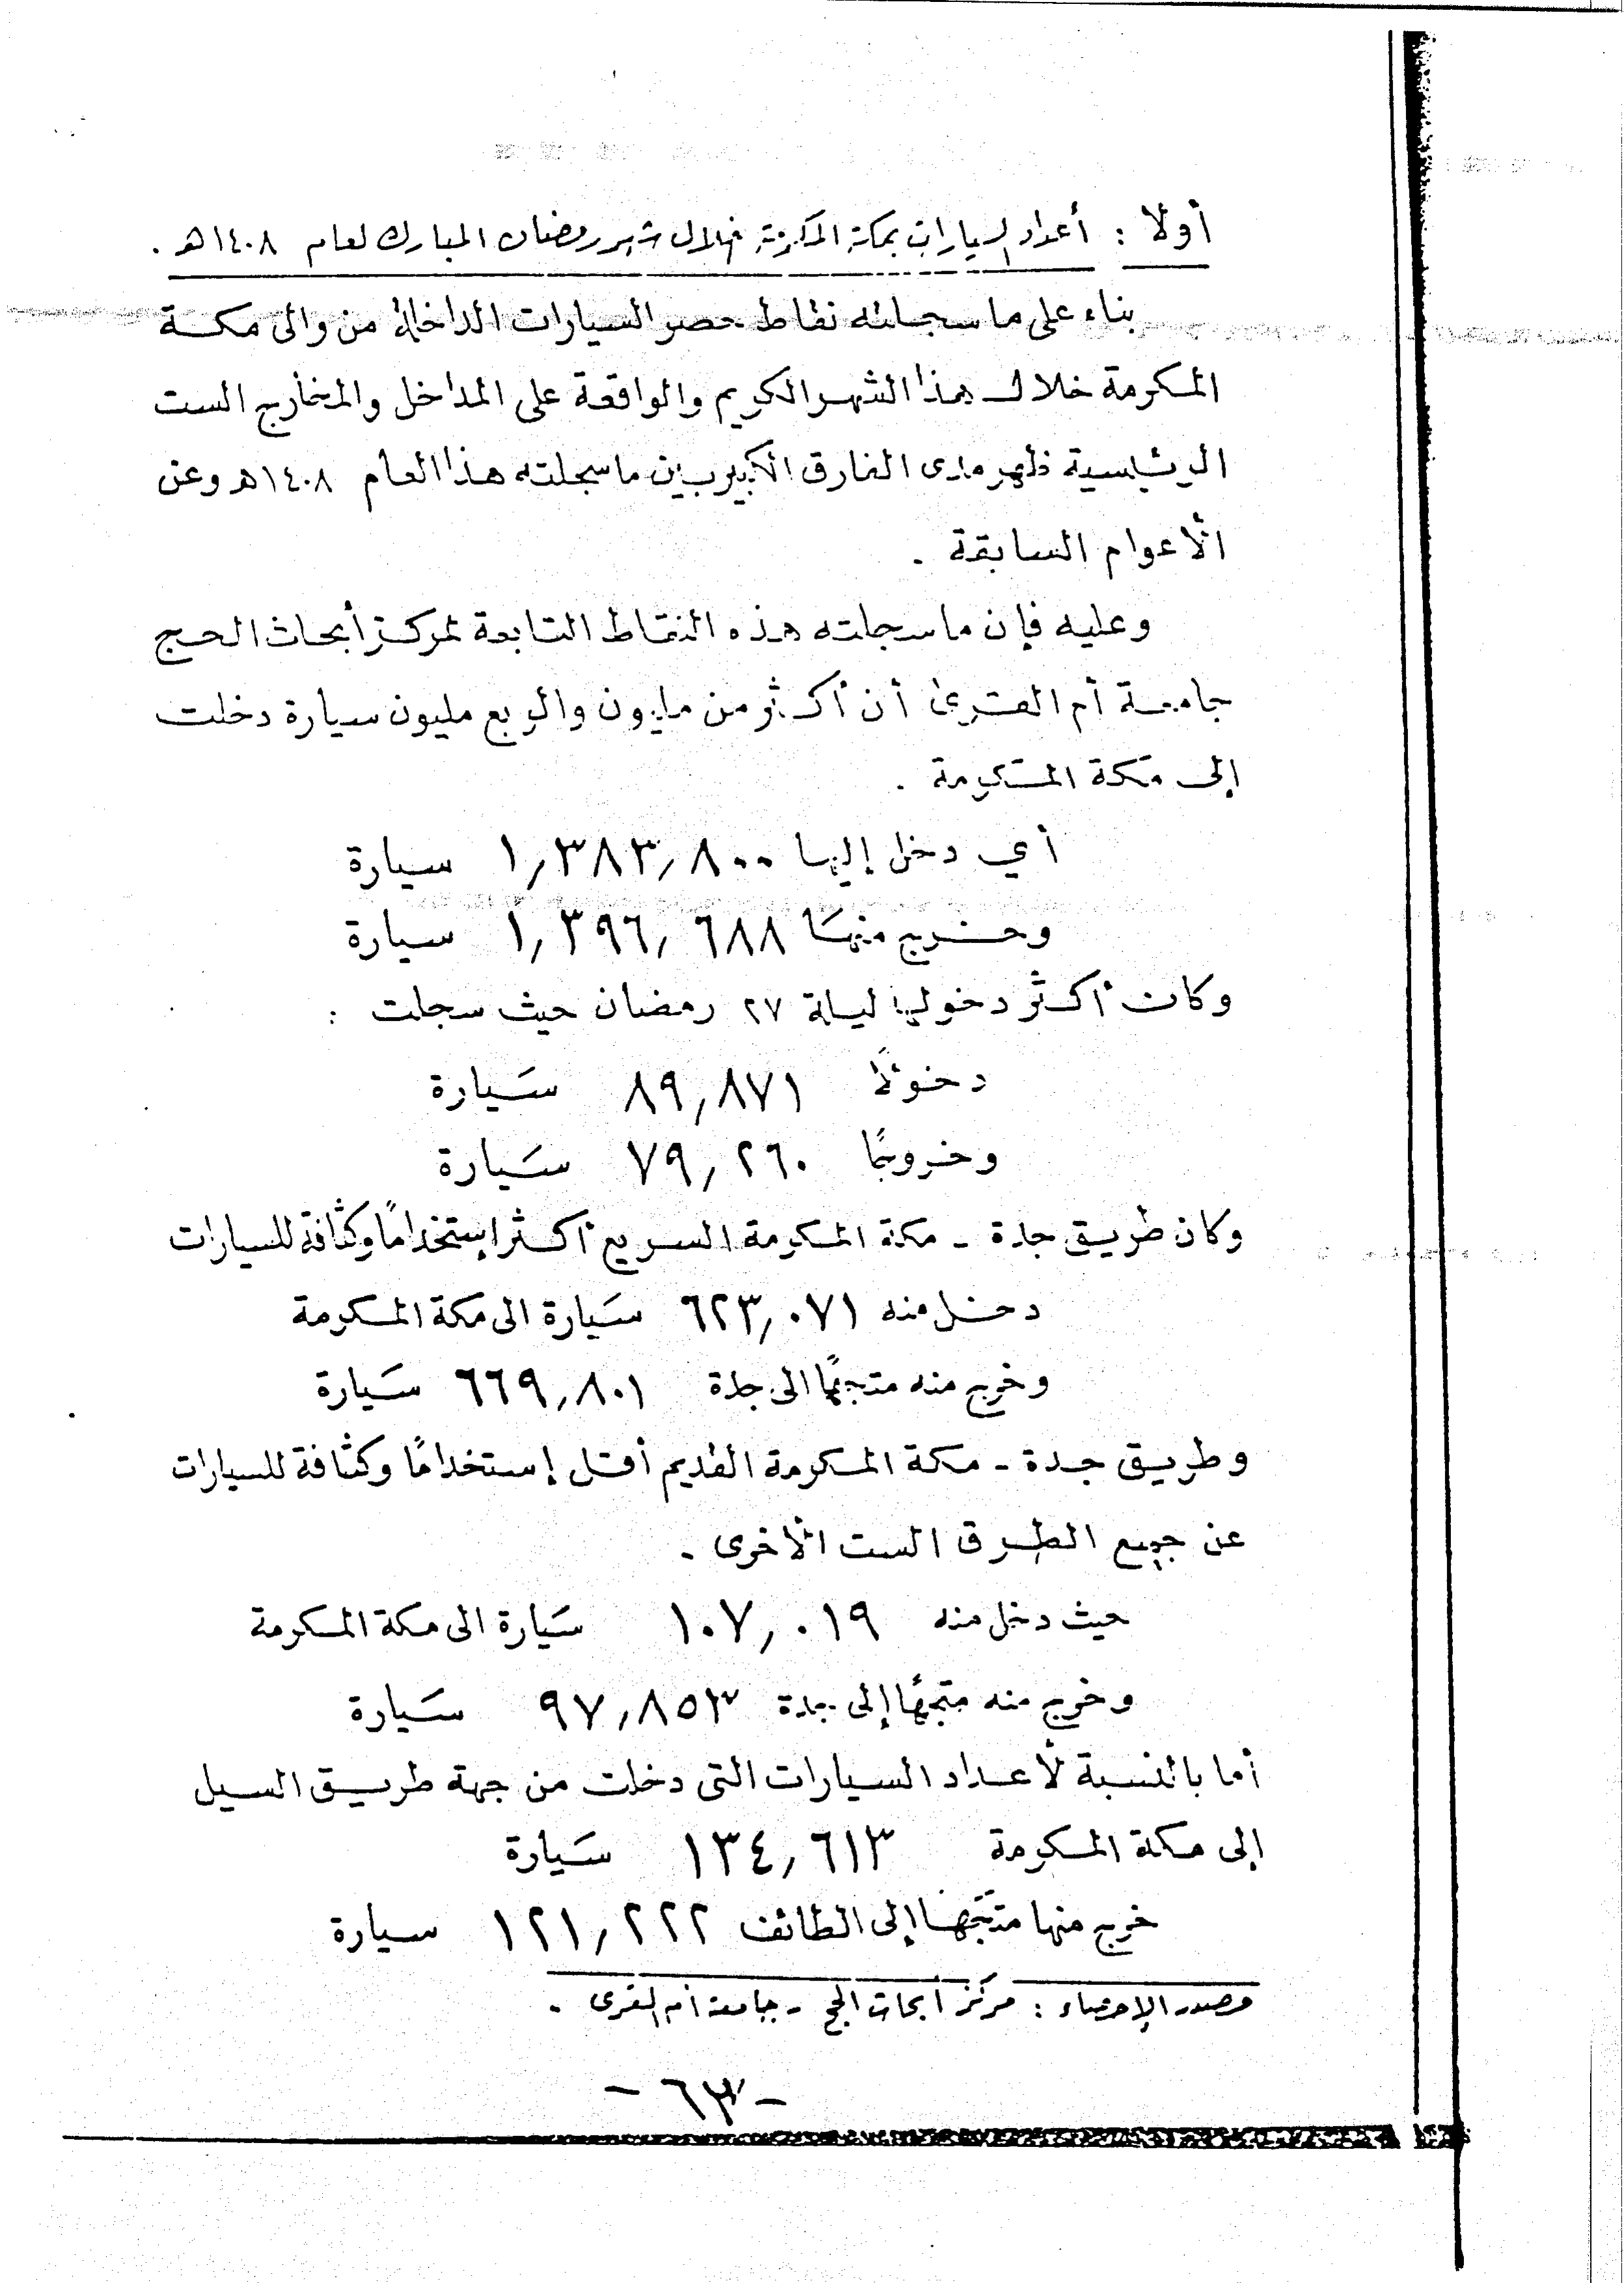 أولا : أعداد السيارات بمكة المكرمة خلال شهر رمضان المبارك لعام ١٤٠٨هـ .
بناء على ما سجلته نقاط حصر السيارات الداخلة من والى مكة
المكرمة خلال هذا الشهر الكريم والواقعة على المداخل والمخارج الست
الرئيسية ظهر مدى الفارق الكبير بين ما سجلته هذا العام ١٤٠٨هـ وعن
الأعوام السابقة .
وعليه فإن ما سجلته هذه النقاط التابعة لمركز أبحاث الحج
جامعة أم القرى أن أكثر من مليون والربع مليون سيارة دخلت
إلى مكة المكرمة .
أي دخل إليها ١,٣٨٣,٨٠٠ سيارة
وخرج منها ١,٣٩٦,٦٨٨ سيارة
وكان أكثر دخولها ليلة ٢٧ رمضان حيث سجلت :
دخولاً ٨٩,٨٧١ سَيارة
وخروجًا ٧٩,٢٦٠ سَيارة
وكان طريق جدة - مكة المكرمة السريع أكثر إستخدامًا وكثافة للسيارات
دخل منه ٦٢٣,٠٧١ سَيارة الى مكة المكرمة
وخرج منه متجهًا الى جدة ٦٦٩,٨٠١ سَيارة
وطريق جدة - مكة المكرمة القديم أقل إستخدامًا وكثافة للسيارات
عن جميع الطرق الست الأخرى .
حيث دخل منه ١٠٧,٠١٩ سَيارة الى مكة المكرمة
وخرج منه متجهًا إلى جدة ٩٧,٨٥٣ سَيارة
أما بالنسبة لأعداد السيارات التى دخلت من جهة طريق السيل
إلى مكة المكرمة ١٣٤,٦١٣ سَيارة
خرج منها متجها إلى الطائف ١٢١,٢٢٢ سيارة
مصدر الإحصاء : مركز أبحاث الحج - جامعة أم القرى .
- ٦٣ -